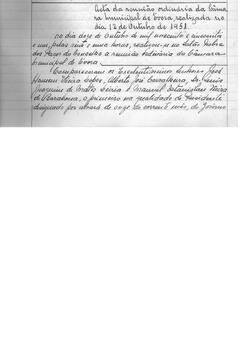 Acta da reunião ordinária da Câma-
ra Municipal de Evora, realizada no
dia 12 de Outubro de 1951.
Ao dia doze de Outubro de mil novecentos e cincoenta
e um, pelas e horas, realizou-se no Salão Nobre
dos Paços do Concelho a reunião ordinária da Câmara
Municipal de Evora.
Compareceram os Excelentissimos Senhores José
Vieira Lopes, Alberto José
Joaquim de Matos e Manuel Estanislau Vieira
de Barahona, o primeiro na qualidade de Presidente
designado por alvará de onze do corrente mês, do Governo